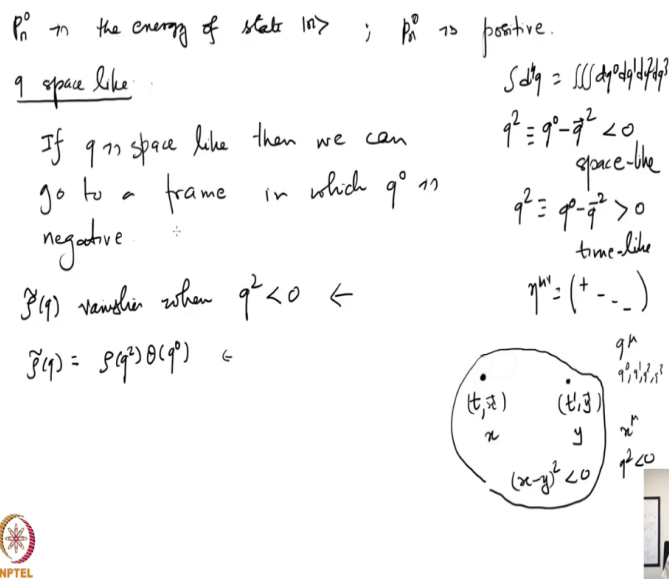 Pₙ⁰ is the energy of state |n> ; Pₙ⁰ is positive.
q space like
If q is space like then we can
go to a frame in which q⁰ is
negative.
ρ̃(q) vanishes when q² < 0 ←
ρ̃(q) = ρ(q²) θ(q⁰) ←
∫d⁴q = ∫∫∫dq⁰dq¹dq²dq³
q² ≡ q⁰ - q⃗² < 0
space-like
q² ≡ q⁰ - q⃗² > 0
time-like
η^μν = (+ - - -)
q^μ
q⁰, q¹, q², q³
(t, x⃗) (t', y⃗)
x y
x^μ
(x-y)² < 0
q² < 0
NPTEL